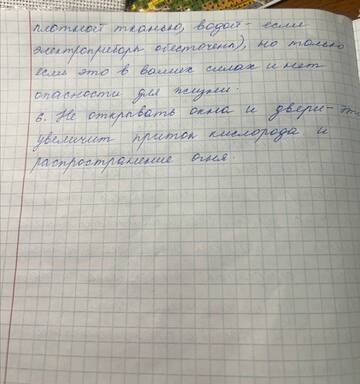 плотной тканью, водой - если
электроприборы обесточены), но только
если это в ваших силах и нет
опасности для жизни.
6. Не открывать окна и двери - это
увеличит приток кислорода и
распространение огня.